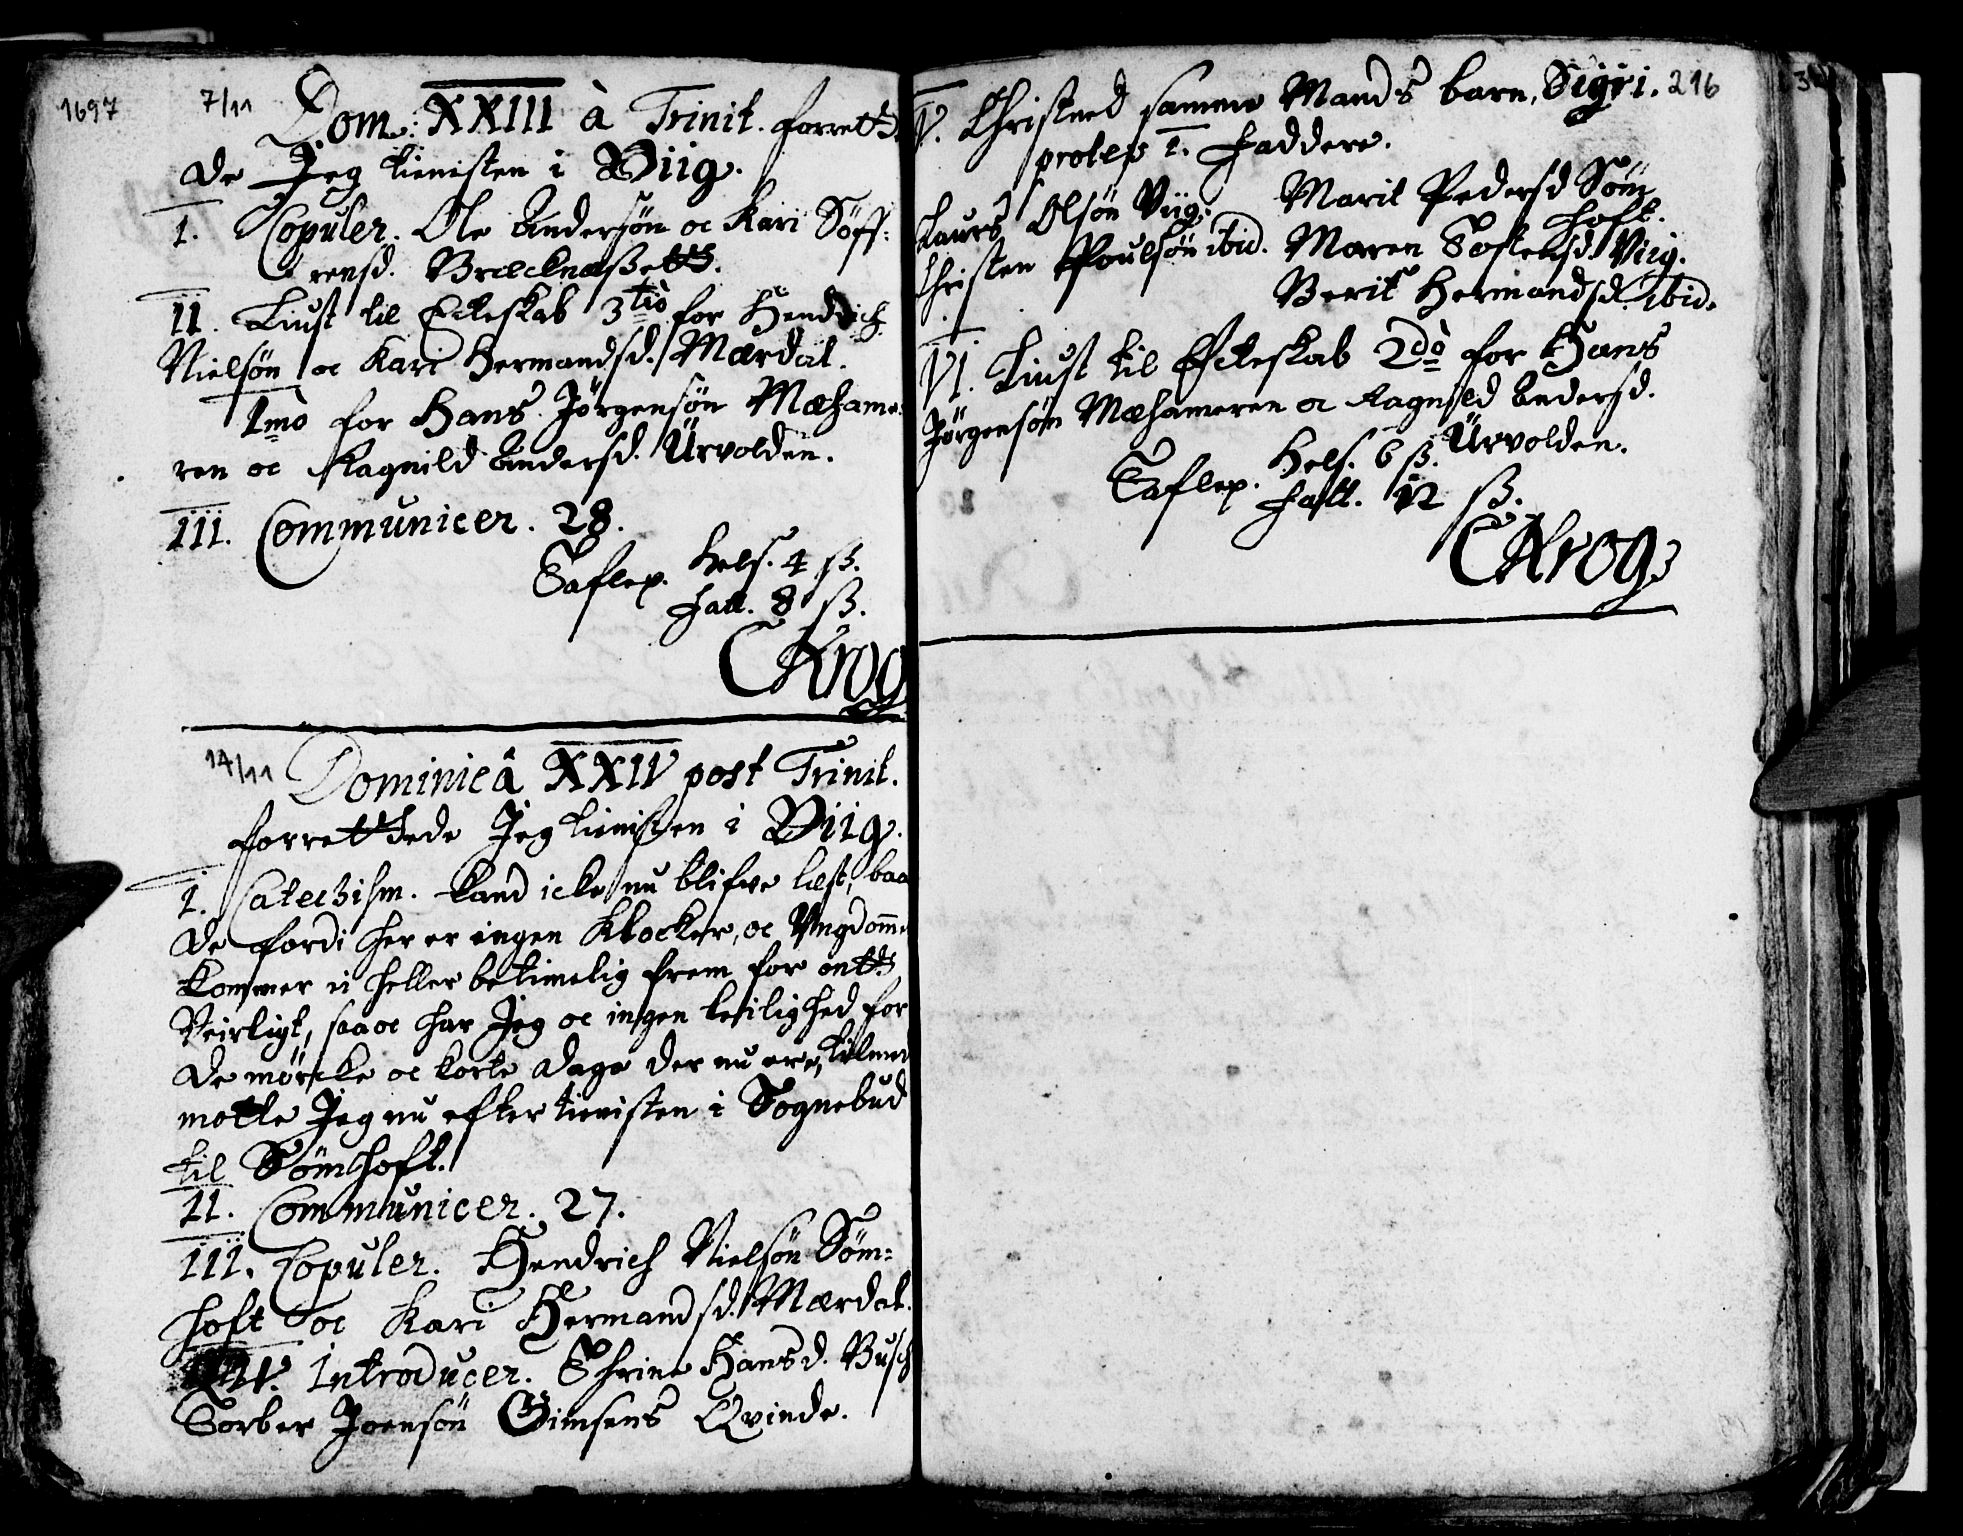 1697
7/11
Dom: XXIII à Trinit. forrett
de Jeg tienisten i Viig.
I. Copuler. Ole Andersøn oc Kari Söff:
rensd. Brælcknæßett.
II. Liust til Ecteskab 3tiò for Hendrich
Nielsøn oc Kari Hermandsd. Mærdal.
1mò for Hans Jörgensøn Mæhame:
ren oc Ragnild Andersd. Ürvolden.
III. Communicer. 28.
Taflep. Hels. 4 ß.
Fatt. 8 ß.
CKrog
14/11
Dominicâ XXIV post Trinit.
forrettede Jeg tienisten i Viig.
I. Catechism. kand icke nu blifve læst, baa
de fordi her er ingen Klocker, oc Ungdomme
kommer ei heller betimelig frem for ontt
Veirligt, saa oc har Jeg oc ingen leilighed for
de mörcke oc korte dage der nu ere, tilmed
motte Jeg nu efter tienisten i Sognebud
til Sömhoft.
II. Communicer. 27.
III. Copuler. Hendrich Nielsøn Söm:
hoft oc Kari Hermandsd. Mærdal.
IV. Introducer. Thrine Hansd. Busch
Torber Joensøn Gimsens Qvinde.
216
V. Christned samme Mands barn, Sigri.
protep 1. Faddere.
Laurs Olsøn Viig. Marit Pedersd Söm
hoft.
Christen Poulsøn ibid. Maren Tostensd. Viig.
Berit Hermandsd. ibid.
VI. Liust til Ecteskab 2dò for Hans
Jörgensøn Mæhameren oc Ragnild Andersd.
Ürvolden.
Taflep. Hels. 6 ß.
Fatt. 12 ß.
CKrog